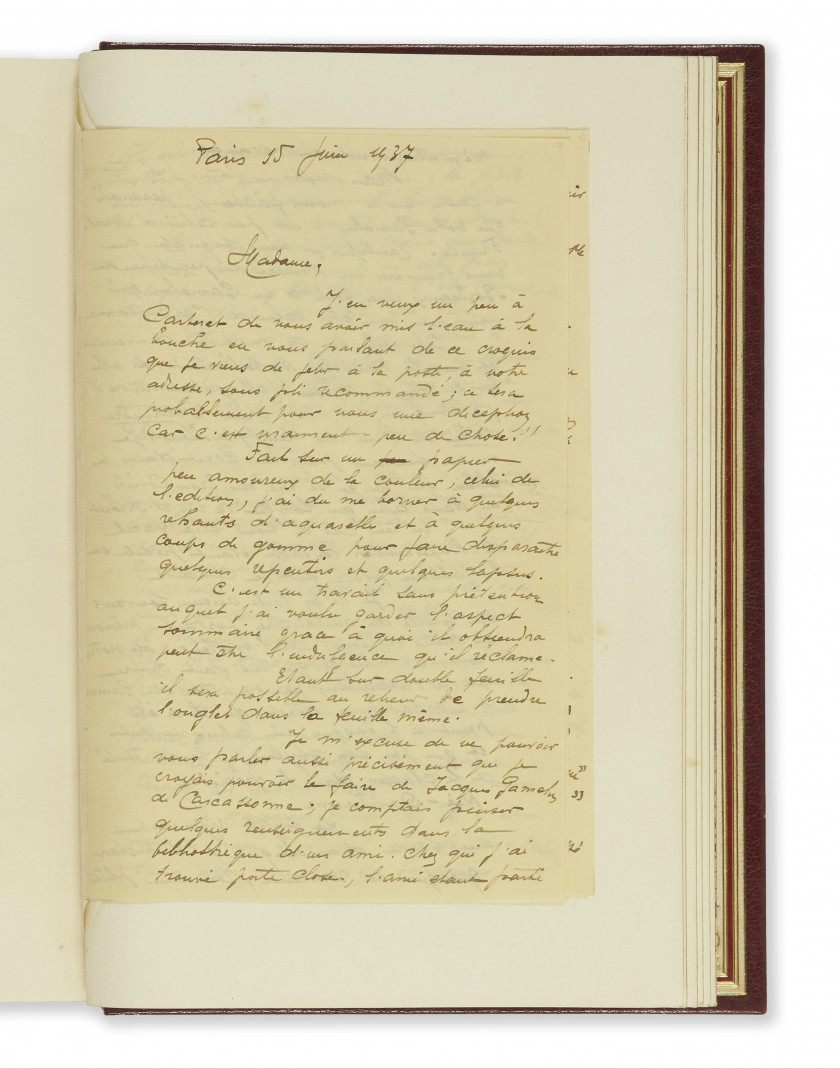 Paris 15 Juin 1937
Madame,
J'en veux un peu à
Carteret de vous avoir mis l'eau à la
bouche en vous parlant de ce croquis
que je viens de jeter à la poste, à votre
adresse, sous pli recommandé; ce sera
probablement pour vous une déception
car c'est vraiment peu de chose!!
Fait sur un papier
peu amoureux de la couleur, celui de
l'édition, j'ai du me borner à quelques
rehauts d'aquarelle et à quelques
coups de gomme pour faire disparaître
quelques repentirs et quelques lapsus.
C'est un travail sans prétention
auquel j'ai voulu garder l'aspect
sommaire grace à quoi il obtiendra
peut être l'indulgence qu'il réclame.
Etant sur double feuille
il sera possible au relieur de prendre
l'onglet dans la feuille même.
Je m'excuse de ne pouvoir
vous parler aussi précisément que je
croyais pouvoir le faire de Jacques Gamelin
de Carcassonne; je comptais puiser
quelques renseignements dans la
bibliothèque d'un ami chez qui j'ai
trouvé porte close, l'ami etant parti